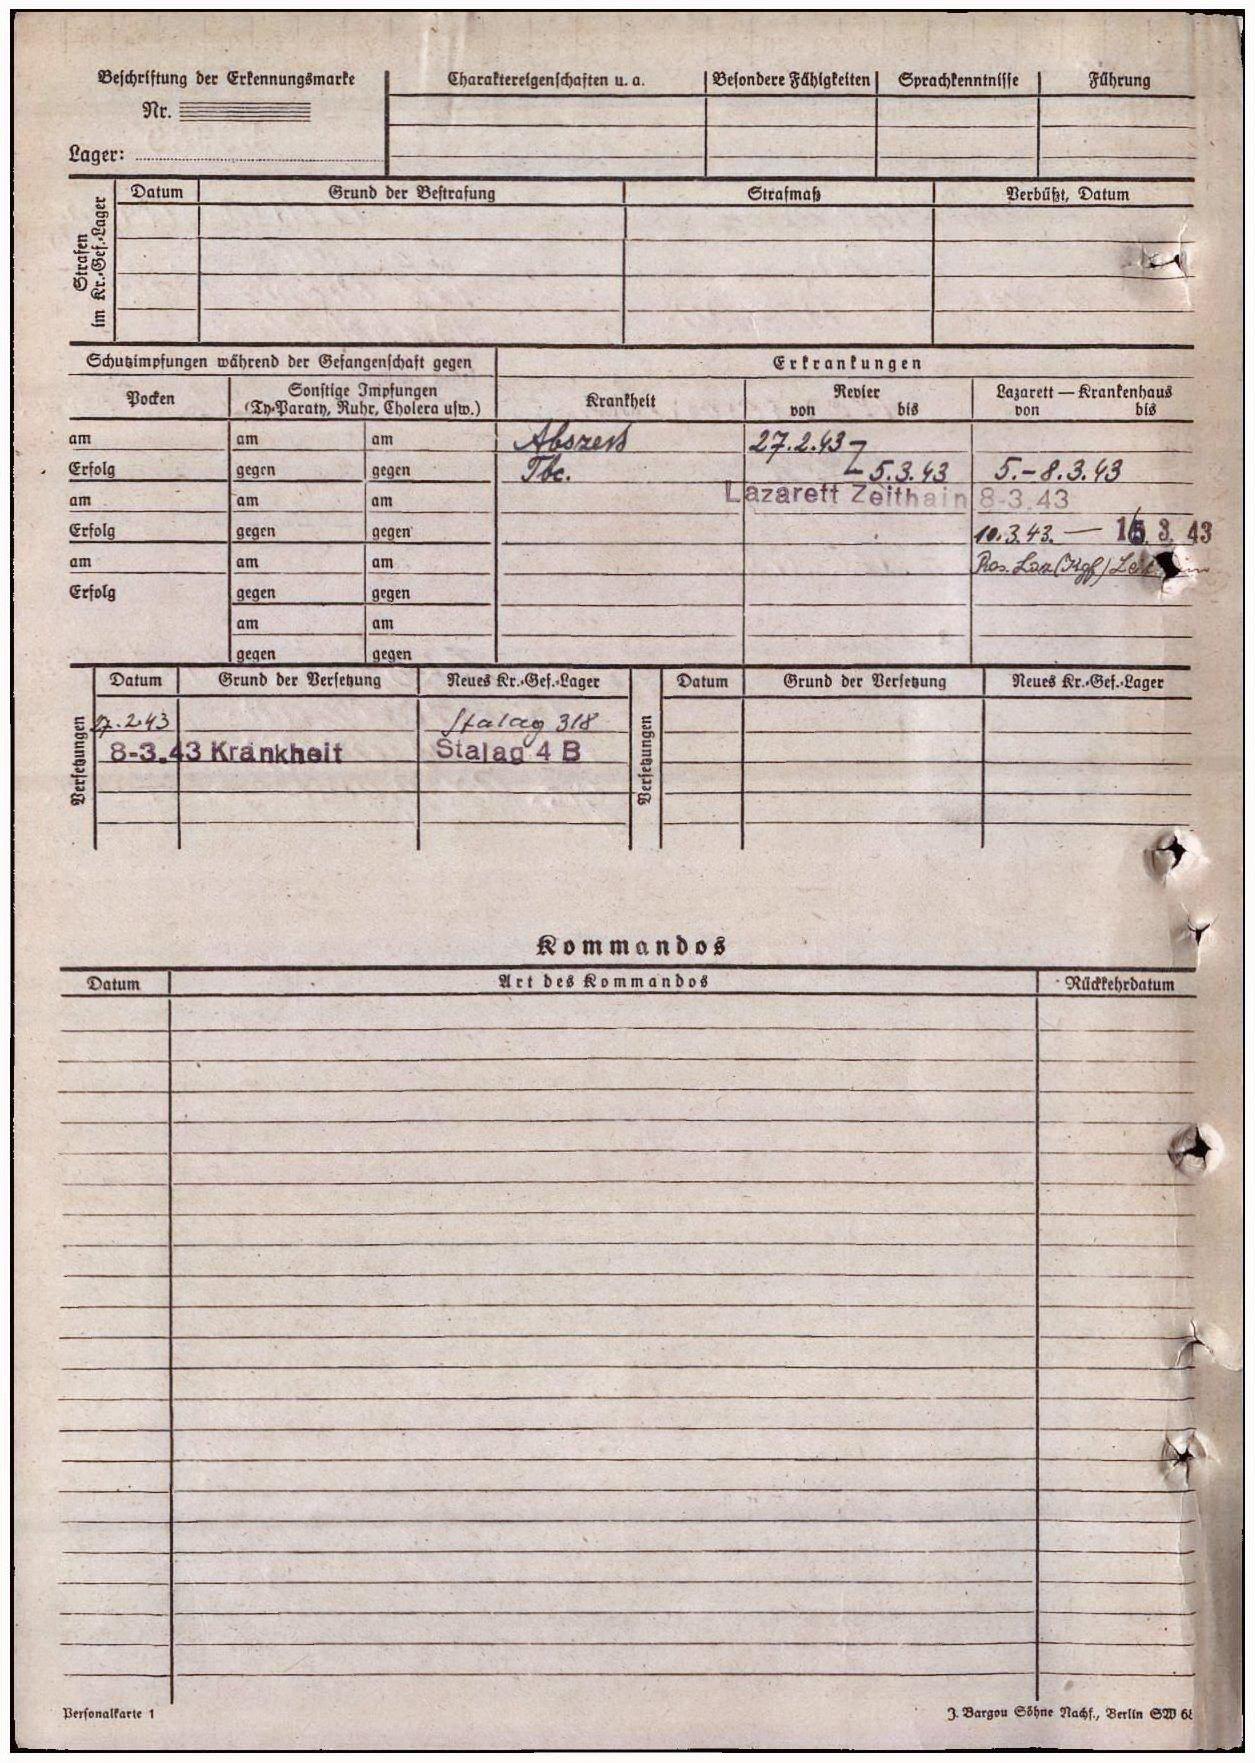 Beschriftung der Erkennungsmarke
Nr.
Lager:
Charaktereigenschaften u. a.
Besondere Fähigkeiten
Sprachkenntnisse
Führung
Strafen
im Kr.-Gef.-Lager
Datum
Grund der Bestrafung
Strafmaß
Verbüßt, Datum
Schutzimpfungen während der Gefangenschaft gegen
Erkrankungen
Pocken
Sonstige Impfungen
(Ty-Paraty, Ruhr, Cholera usw.)
Krankheit
Revier
von bis
Lazarett — Krankenhaus
von bis
am am am Abszess 27.2.43
Erfolg gegen gegen Tbc. 5.3.43 5.-8.3.43
am am am Lazarett Zeithain 8-3.43
Erfolg gegen gegen 10.3.43. — 3. 43
am am am Laz (Kgf)
Erfolg gegen gegen
am am
gegen gegen
Versetzungen
Datum Grund der Versetzung Neues Kr.-Gef.-Lager
.2.43 Stalag 318
8-3.43 Krankheit Stalag 4 B
Versetzungen
Datum Grund der Versetzung Neues Kr.-Gef.-Lager
Kommandos
Datum Art des Kommandos Rückkehrdatum
Personalkarte 1
J. Bargou Söhne Nachf., Berlin SW 68